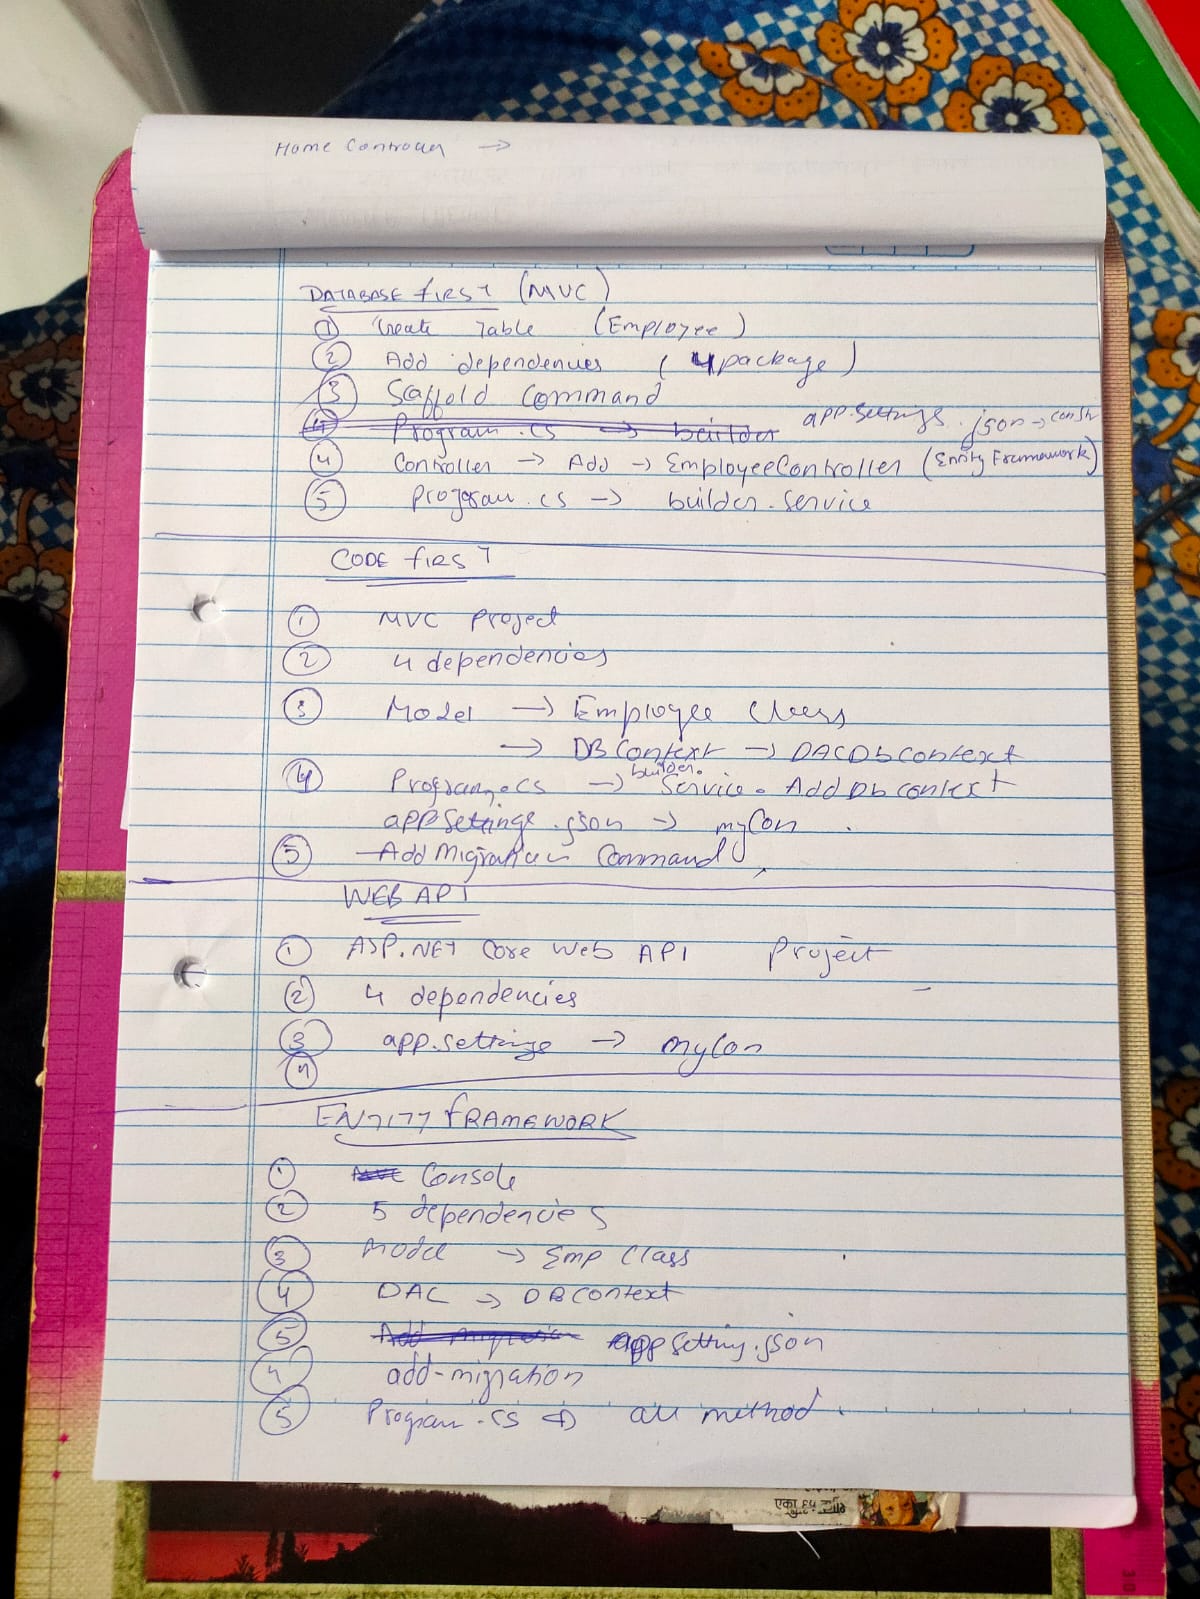 Home Controller →
DATABASE first (MVC)
① Create Table (Employee)
② Add dependencies (4 package)
③ Scaffold Command
④ Program.cs → builder app.settings.json → constr
④ Controller → Add → EmployeeController (Entity Framework)
⑤ program.cs → builder.service
CODE first
① MVC Project
② 4 dependencies
③ Model → Employee class
→ DBContext → DACDbcontext
④ Program.cs → builder.Service.AddDbcontext
appsettings.json → myCon
⑤ Add Migration Command
WEB API
① ASP.NET Core Web API Project
② 4 dependencies
③ app.settings → myCon
④
ENTITY FRAMEWORK
① MVC Console
② 5 dependencies
③ Model → Emp Class
④ DAC → DBContext
⑤ Add migration appsetting.json
4 add-migration
⑤ Program.cs → all method.